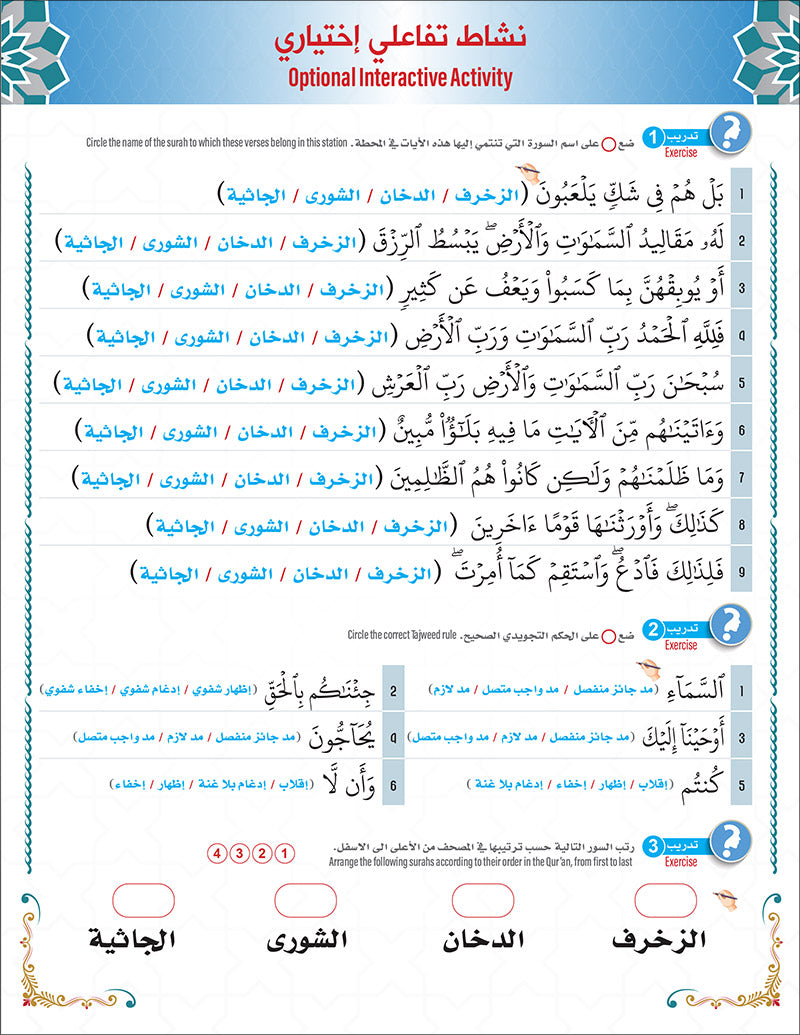 نشاط تفاعلي إختياري
Optional Interactive Activity
تدريب 1 Exercise
ضع ○ على اسم السورة التي تنتمي إليها هذه الآيات في المحطة. Circle the name of the surah to which these verses belong in this station
1 بَلْ هُمْ فِى شَكٍّ يَلْعَبُونَ (الزخرف / الدخان / الشورى / الجاثية)
2 لَهُۥ مَقَالِيدُ ٱلسَّمَٰوَٰتِ وَٱلْأَرْضِ ۖ يَبْسُطُ ٱلرِّزْقَ (الزخرف / الدخان / الشورى / الجاثية)
3 أَوْ يُوبِقْهُنَّ بِمَا كَسَبُوا۟ وَيَعْفُ عَن كَثِيرٍ (الزخرف / الدخان / الشورى / الجاثية)
٩ فَلِلَّهِ ٱلْحَمْدُ رَبِّ ٱلسَّمَٰوَٰتِ وَرَبِّ ٱلْأَرْضِ (الزخرف / الدخان / الشورى / الجاثية)
5 سُبْحَٰنَ رَبِّ ٱلسَّمَٰوَٰتِ وَٱلْأَرْضِ رَبِّ ٱلْعَرْشِ (الزخرف / الدخان / الشورى / الجاثية)
6 وَءَاتَيْنَٰهُم مِّنَ ٱلْءَايَٰتِ مَا فِيهِ بَلَٰٓؤٌا۟ مُّبِينٌ (الزخرف / الدخان / الشورى / الجاثية)
7 وَمَا ظَلَمْنَٰهُمْ وَلَٰكِن كَانُوا۟ هُمُ ٱلظَّٰلِمِينَ (الزخرف / الدخان / الشورى / الجاثية)
8 كَذَٰلِكَ ۖ وَأَوْرَثْنَٰهَا قَوْمًا ءَاخَرِينَ (الزخرف / الدخان / الشورى / الجاثية)
9 فَلِذَٰلِكَ فَٱدْعُ ۖ وَٱسْتَقِمْ كَمَآ أُمِرْتَ ۖ (الزخرف / الدخان / الشورى / الجاثية)
تدريب 2 Exercise
ضع ○ على الحكم التجويدي الصحيح. Circle the correct Tajweed rule
1 ٱلسَّمَآءِ (مد جائز منفصل / مد واجب متصل / مد لازم)
2 جِئْنَٰكُم بِٱلْحَقِّ (إظهار شفوي / إدغام شفوي / إخفاء شفوي)
3 أَوْحَيْنَآ إِلَيْكَ (مد جائز منفصل / مد لازم / مد واجب متصل)
٩ يُحَآجُّونَ (مد جائز منفصل / مد لازم / مد واجب متصل)
5 كُنتُم (إقلاب / إظهار / إخفاء / إدغام بلا غنة)
6 وَأَن لَّا (إقلاب / إدغام بلا غنة / إظهار / إخفاء)
تدريب 3 Exercise
رتب السور التالية حسب ترتيبها في المصحف من الأعلى الى الاسفل. 1 2 3 4
Arrange the following surahs according to their order in the Qur'an, from first to last
الزخرف الدخان الشورى الجاثية